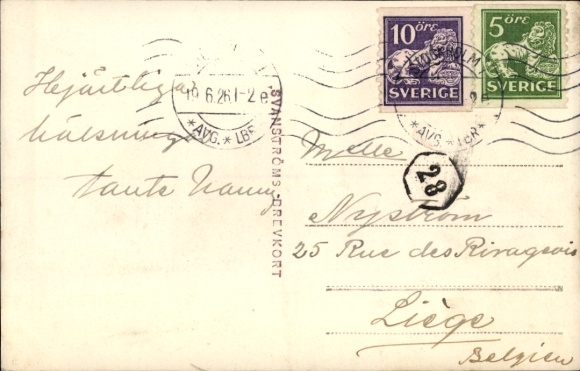 10 ÖRE
SVERIGE
5 ÖRE
SVERIGE
STOCKHOLM
*AVG.*LBR
6.26 1-2 e
*AVG.*LBR
Hejärtliga
hälsningar
tante Nanny
SVANSTRÖMS-BREVKORT
28
Melle
Nyström
25 Rue des Rivageois
Liège
Belgien